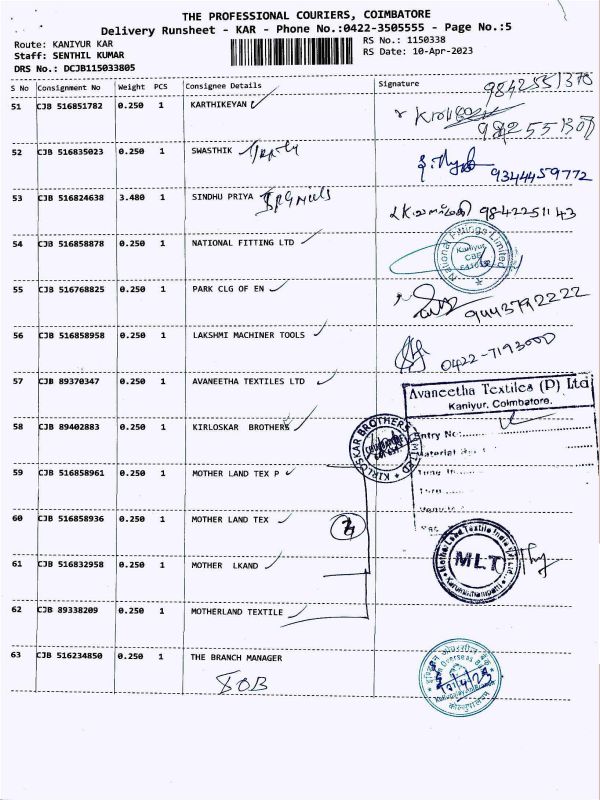 THE PROFESSIONAL COURIERS, COIMBATORE
Delivery Runsheet - KAR - Phone No.:0422-3505555 - Page No.:5
Route: KANIYUR KAR
RS No.: 1150338
Staff: SENTHIL KUMAR
RS Date: 10-Apr-2023
DRS No.: DCJB115033805
S No Consignment No Weight PCS Consignee Details Signature
51 CJB 516851782 0.250 1 KARTHIKEYAN
52 CJB 516835023 0.250 1 SWASTHIK
9344459772
53 CJB 516824638 3.480 1 SINDHU PRIYA
9842251143
54 CJB 516858878 0.250 1 NATIONAL FITTING LTD
National Fittings Limited
Kaniyur
CBE
55 CJB 516768825 0.250 1 PARK CLG OF EN
9443792222
56 CJB 516858958 0.250 1 LAKSHMI MACHINER TOOLS
0422-7193000
57 CJB 89370347 0.250 1 AVANEETHA TEXTILES LTD
Avaneetha Textiles (P) Ltd
Kaniyur, Coimbatore.
Entry No:
58 CJB 89402883 0.250 1 KIRLOSKAR BROTHERS
KIRLOSKAR BROTHERS LIMITED
59 CJB 516858961 0.250 1 MOTHER LAND TEX P
60 CJB 516858936 0.250 1 MOTHER LAND TEX
MLT
61 CJB 516832958 0.250 1 MOTHER LKAND
62 CJB 89338209 0.250 1 MOTHERLAND TEXTILE
63 CJB 516234850 0.250 1 THE BRANCH MANAGER
IOB